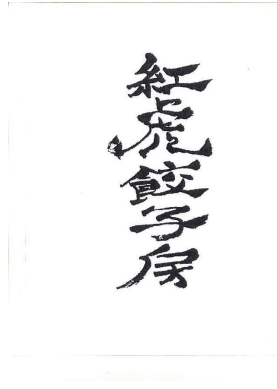 紅虎餃子房